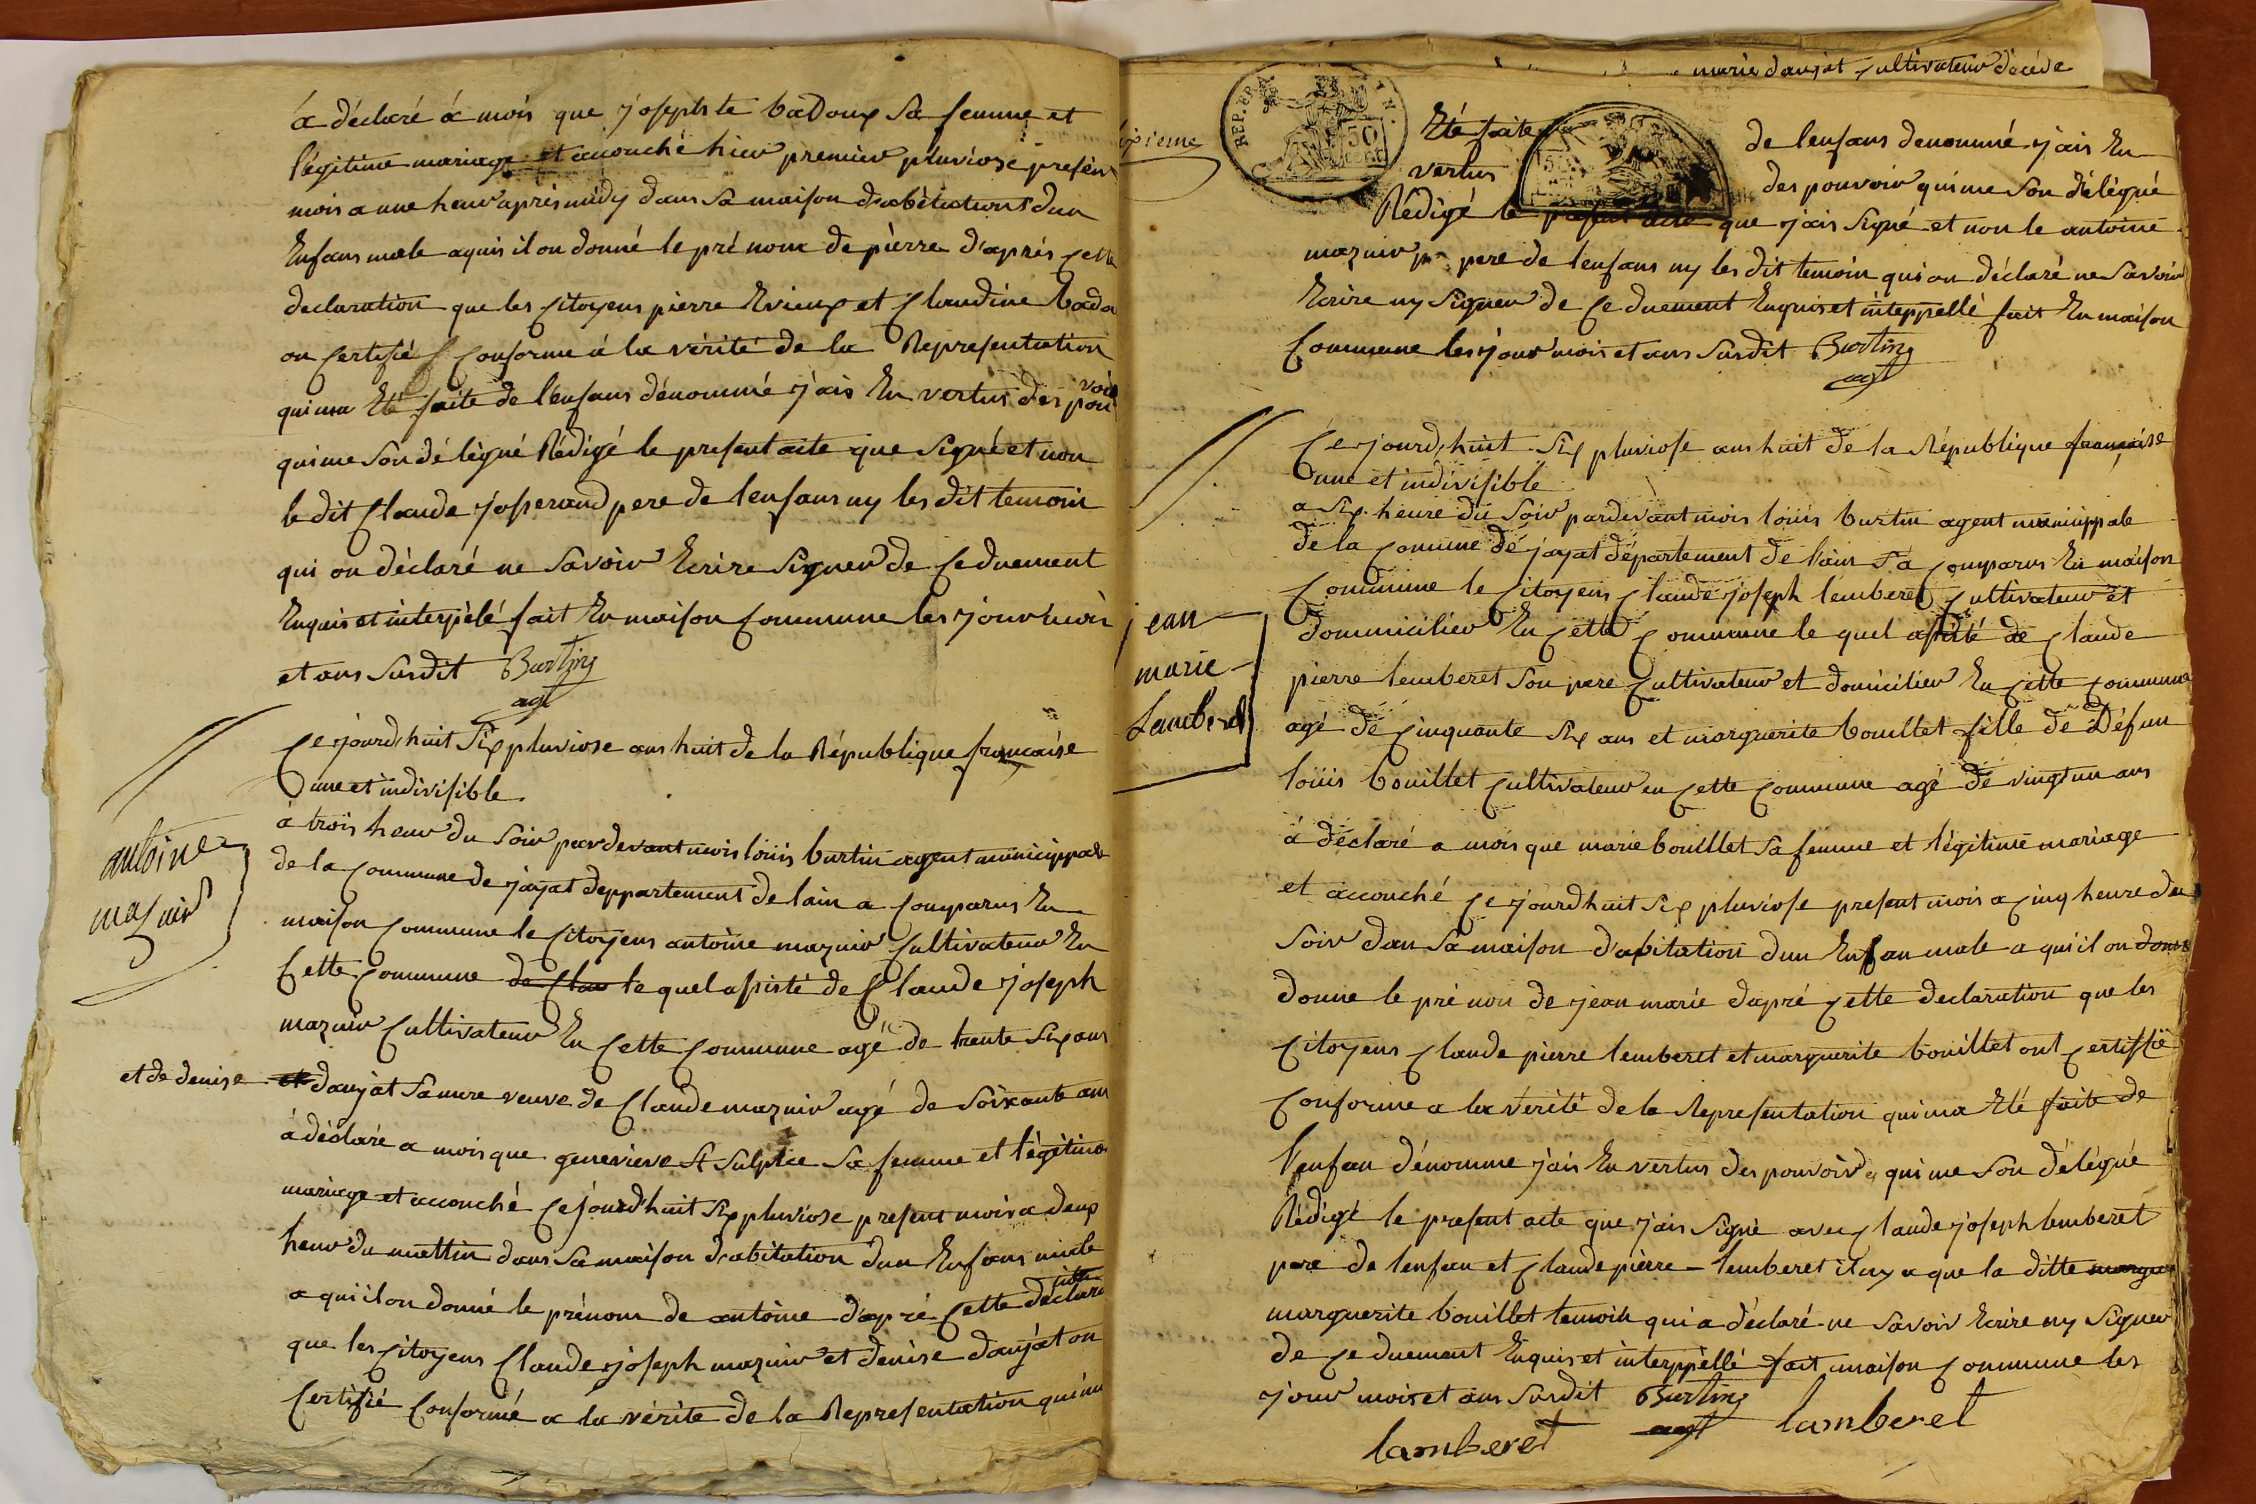 á déclaré á mois que josephte badoux sa femme et
légitime mariage et acouché hier premier pluviose présent
mois a une heur aprés midy dans sa maison d'abitations d'un
Enfans male a quis il on donné le pré nom de pierre d'aprés cette
declaration que les citoyens pierre Evieux et Claudine bado
on certifié conforme á la vérité de la Representation
qui ma Eté faite de l'enfans dénommé j'ais En vertus des pou
voir
qui me son délégué Rédigé le present acte que signé et non
le dit Claude josserand pere de l'enfans ny les dit temoin
qui on déclaré ne savoir Ecrire signer de ce duement
Enquis et interpélé fait En maison commune les jour mois
et ans susdit Burtin
agt
Ce jourd'huit six pluviose ans huit de la République francaise
une et indivisible
á trois heur du soir pardevant mois louis burtin agent municippale
de la commune de jayat deppartement de lain a comparus En
maison commune le citoyens antoine mazuir cultivateur En
antoine
mazuir
Cette commune de Clau le quel assisté de Claude joseph
mazuir cultivateur En cette commune agé de trente six ans
et de denise et daujat sa mere veuve de Claude mazuir agé de soixante ans
á déclaré a mois que genevieve St Sulpice sa femme et légitime
mariage et acouché ce jourd'huit six pluviose present mois a deux
heur du mattin dans sa maison d'abitation d'un Enfans male
a qui il on donné le prénom de antoine d'apré cette declara
que les citoyens Claude joseph mazuir et denise daujat on
Certifié Conformé a la vérite de la Representation qui ma
marie daujat cultivateur décéde
REP. FRA.
50
Eté faite de l'enfans denommé j'ais En
vertus des pouvoir qui me son délégué
Rédigé le present acte que j'ais signé et non le antoine
mazuir pere de l'enfans ny les dit temoin qui on déclaré ne savoir
Ecrire ny signer de ce duement Enquis et inteppellé fait En maison
Commune les jour mois et ans susdit Burtin
agt
Ce jourd'huit six pluviose ans huit de la République francaise
une et indivisible
a six heure du soir pardevant mois louis burtin agent municippale
de la comune de jayat département de l'ain s'a comparus En maison
Commune le citoyens Claude joseph lemberet cultivateur et
jean
marie
Lamberet
dommicilier En cette commune le quel assisté de Claude
pierre lemberet son pere cultivateur et domicilier En cette commune
agé de cinquante six ans et marguerite bouillet fille de Défun
louis bouillet cultivateur en cette commune agé de vingt un ans
á déclaré a mois que marie bouillet sa femme et légitime mariage
et accouché ce jourd'huit six pluviose present mois a cinq heure du
soir dan sa maison d'abitation d'un Enfan male a qui il on donné
donne le pré non de jean marie d'apré cette declaration que les
Citoyens Claude pierre lemberet et marguerite bouillet ont certiffié
Conforme a la vérité de la Representation qui ma Eté faite de
l'enfan dénomme j'ais En vertus des pouvoir qui me son délégué
Rédigé le present acte que j'ais signé avec Claude joseph lemberet
pere de l'enfan et Claude pierre lemberet il ny a que la ditte margue
marguerite bouillet temoin qui a déclaré ne savoir Ecrire ny signer
de ce duement Enquis et interppéllé fait maison commune les
jour mois et ans susdit Burtin
agt
lamberet
lamberet